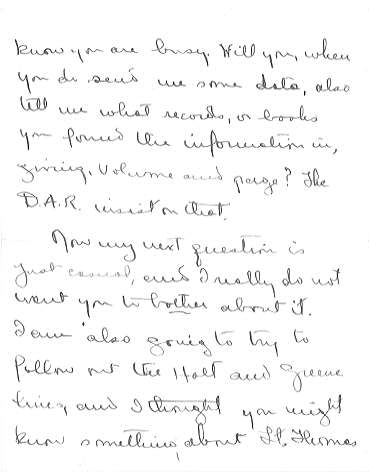 know you are busy. Will you, when
you do send me some data, also
tell me what records, or books
you found the information in,
giving, Volume and page? The
D.A.R. insist on that.
Now my next question is
just casual, and I really do not
want you to bother about it.
I am also going to try to
follow out the Holt and Greene
lines, and I thought you might
know something about Lt. Thomas